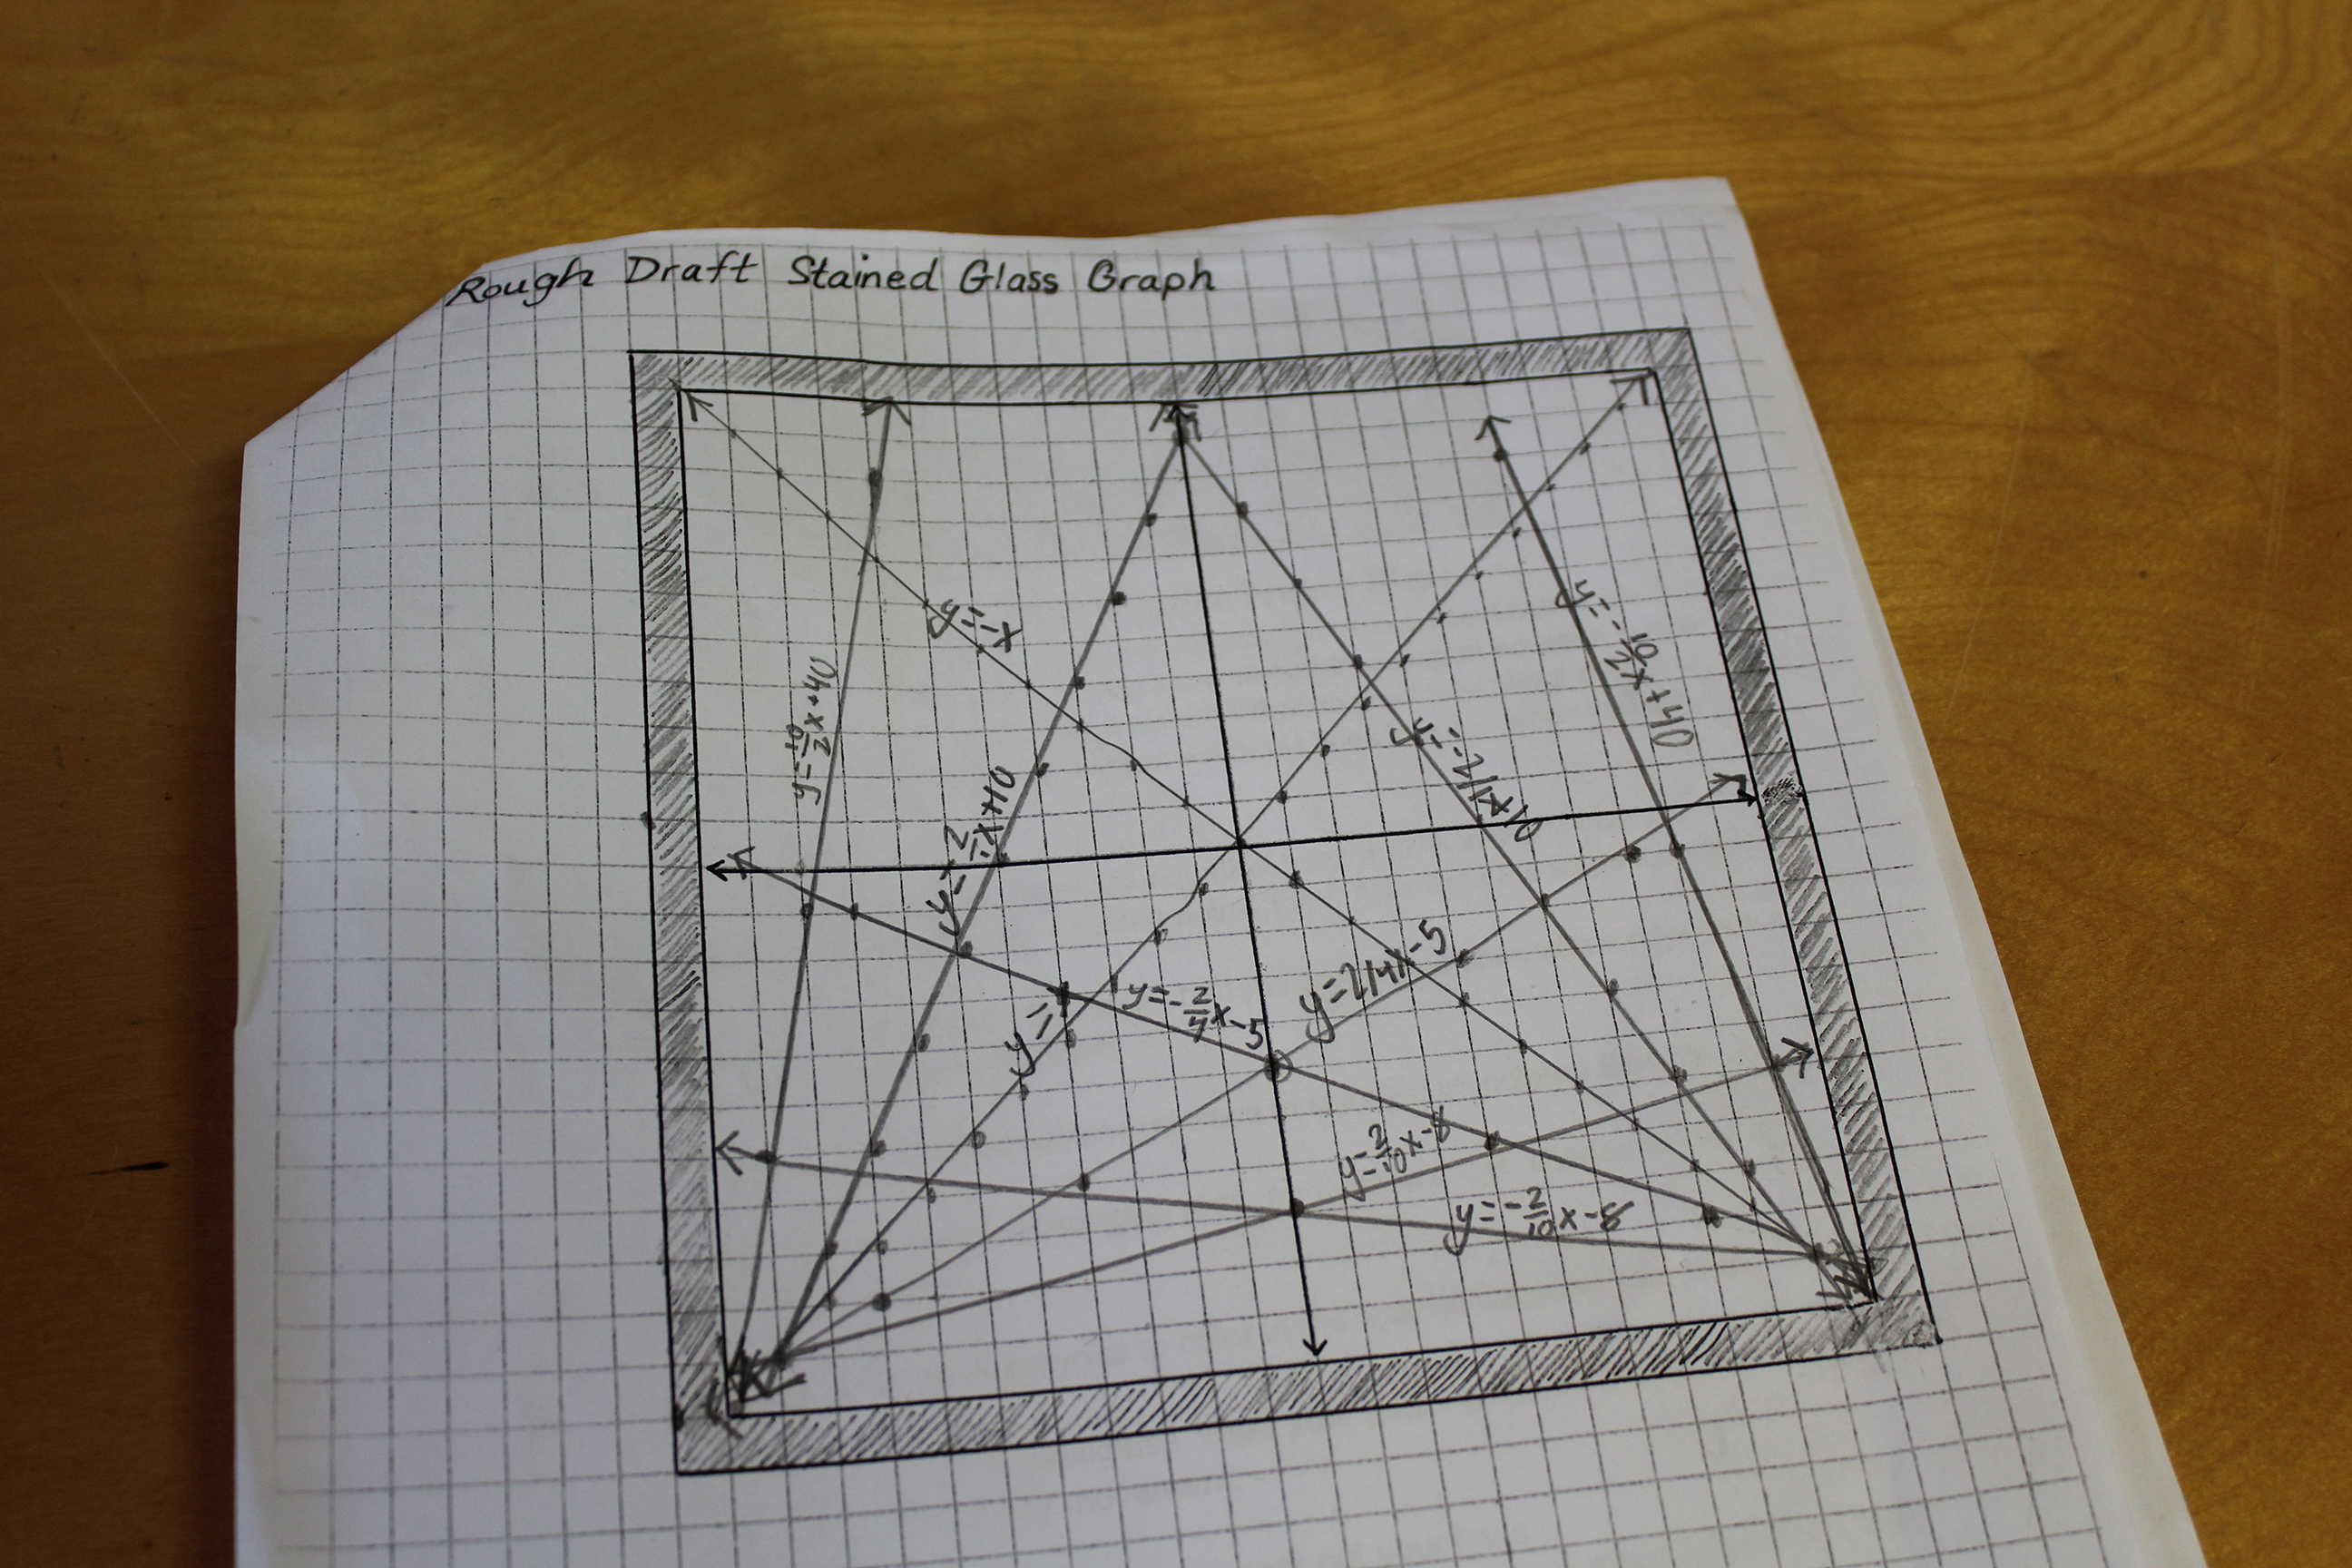 Rough Draft Stained Glass Graph
y=-x
y=10/2x+40
y=-10/2x+40
y=2/1x+10
y=-2/1x+10
y=2/4x-5
y=-2/4x-5
y=2/10x-8
y=-2/10x-8